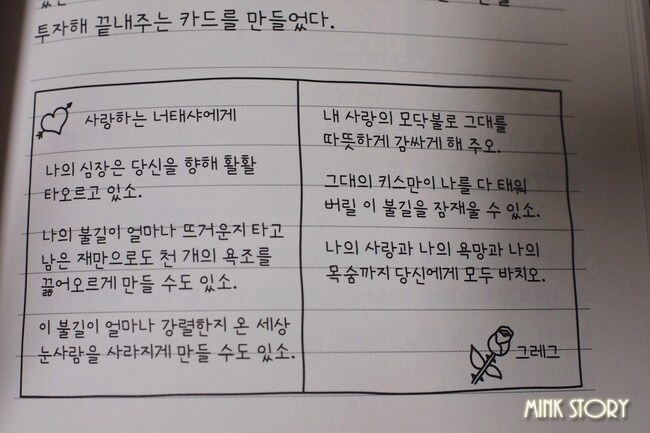 투자해 끝내주는 카드를 만들었다.
사랑하는 너태샤에게
나의 심장은 당신을 향해 활활
타오르고 있소.
나의 불길이 얼마나 뜨거운지 타고
남은 재만으로도 천 개의 욕조를
끓어오르게 만들 수도 있소.
이 불길이 얼마나 강렬한지 온 세상
눈사람을 사라지게 만들 수도 있소.
내 사랑의 모닥불로 그대를
따뜻하게 감싸게 해 주오.
그대의 키스만이 나를 다 태워
버릴 이 불길을 잠재울 수 있소.
나의 사랑과 나의 욕망과 나의
목숨까지 당신에게 모두 바치오.
그레그
MINK STORY